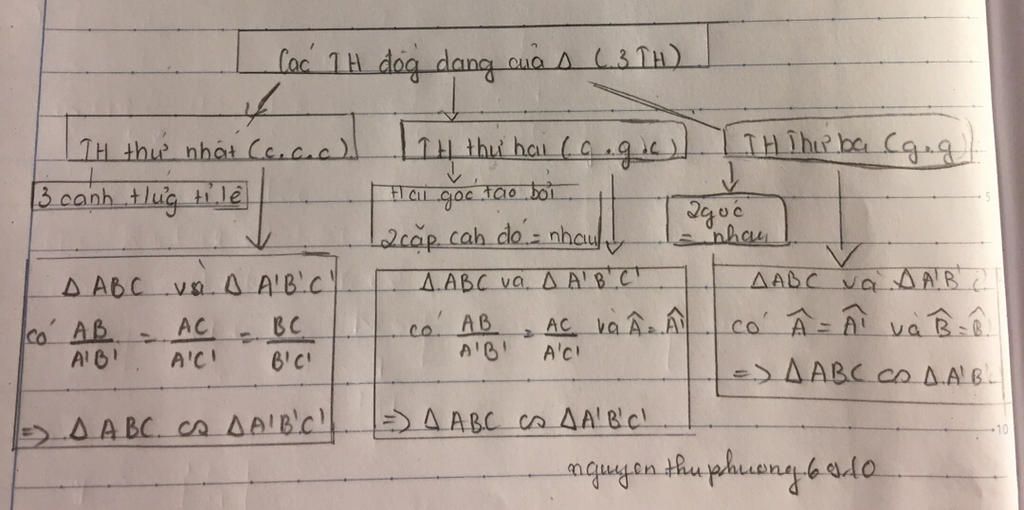 Các TH đồg dạng của Δ (3TH)
TH thứ nhất (c.c.c)
3 cạnh tứg tỉ lệ
ΔABC và ΔA'B'C'
có AB/A'B' = AC/A'C' = BC/B'C'
=> ΔABC ∽ ΔA'B'C'
TH thứ hai (g.g.c)
Hai góc tạo bởi
2 cặp cah đó = nhau
ΔABC và ΔA'B'C'
có AB/A'B' = AC/A'C' và Â = Â'
=> ΔABC ∽ ΔA'B'C'
TH Thứ ba (g.g)
2 góc
= nhau
ΔABC và ΔA'B'C'
có Â = Â' và B̂ = B̂
=> ΔABC ∽ ΔA'B'
5
10
nguyen thu phuong